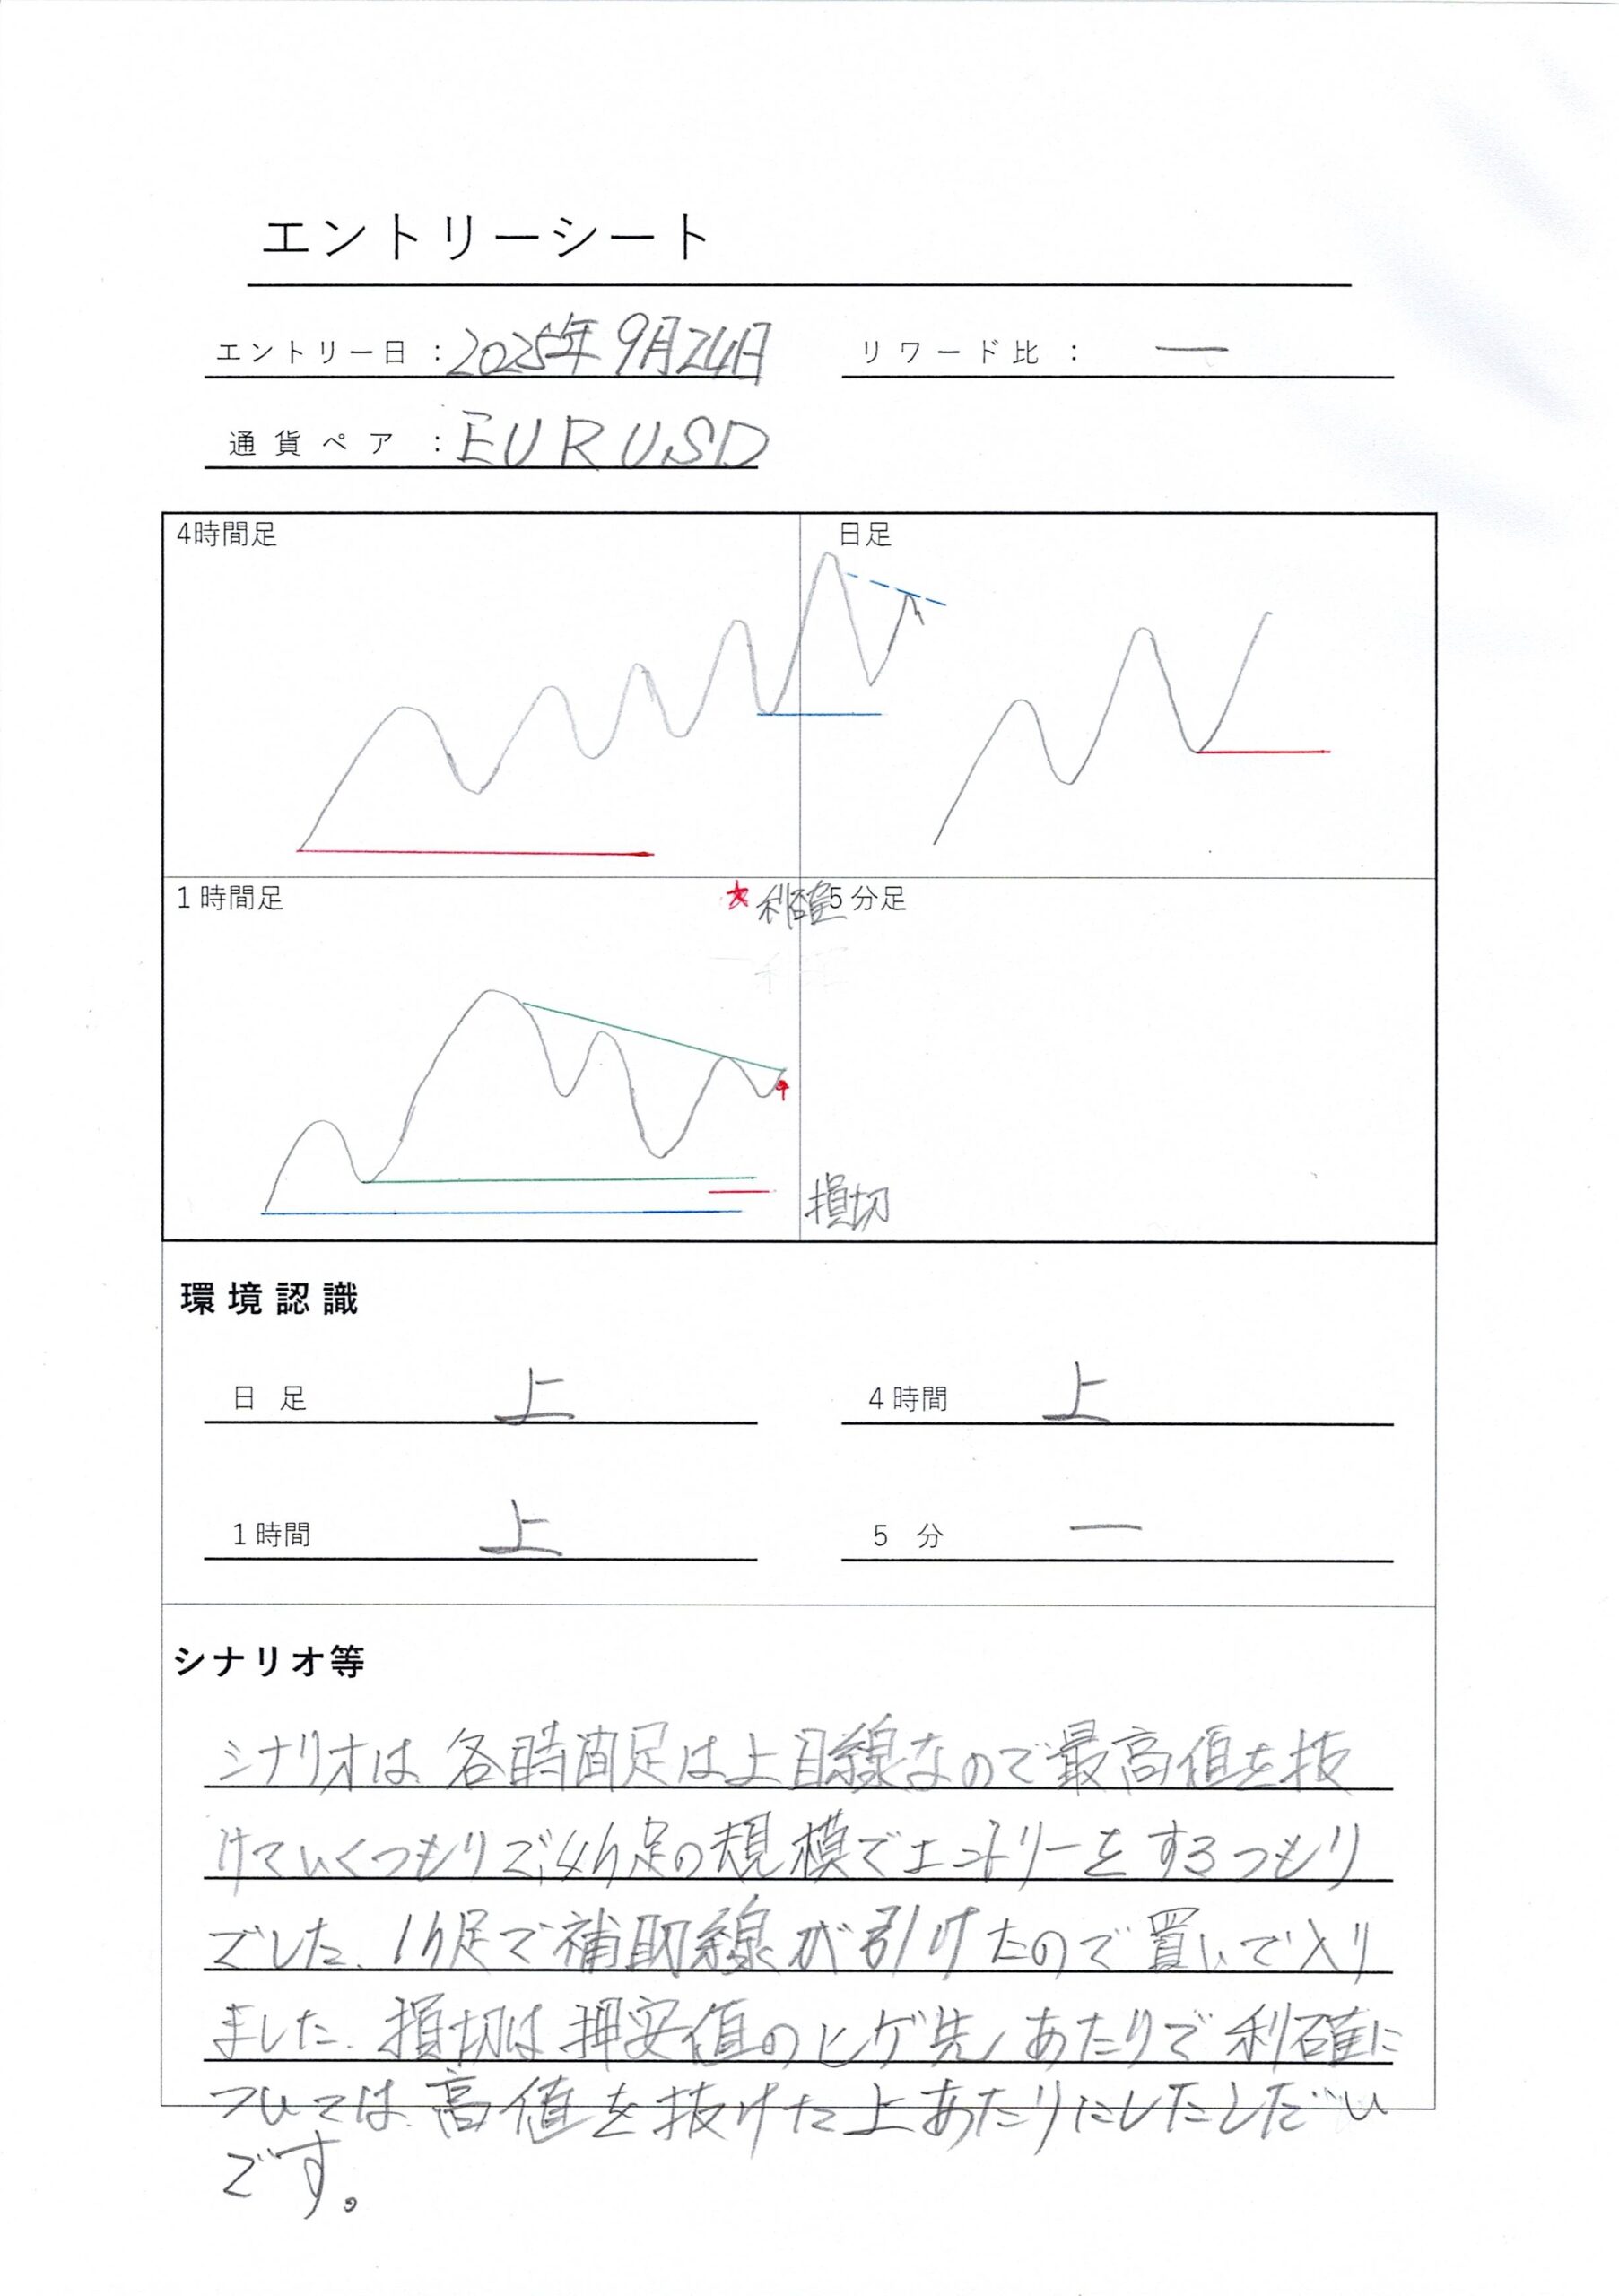 エントリーシート
エントリー日 : 2025年9月24日
リワード比 : ー
通貨ペア : EURUSD
4時間足
日足
1時間足
★利確
5分足
損切
環境認識
日足 上
4時間 上
1時間 上
5分 ー
シナリオ等
シナリオは各時間足は上目線なので最高値を抜
けていくつもりで、4h足の規模でエントリーをするつもり
でした、1h足で補助線が引けたので買いで入り
ました、損切は押安値のヒゲ先あたりで利確に
ついては高値を抜けた上あたりにしたしだい
です。